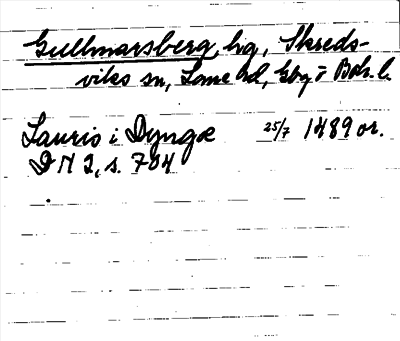 Gullmarsberg, hg, Skreds-
viks sn, Lane hd, Gbg o Boh. l.
Lauris i Dyngæ 25/7 1489 or.
DN 2, s. 704